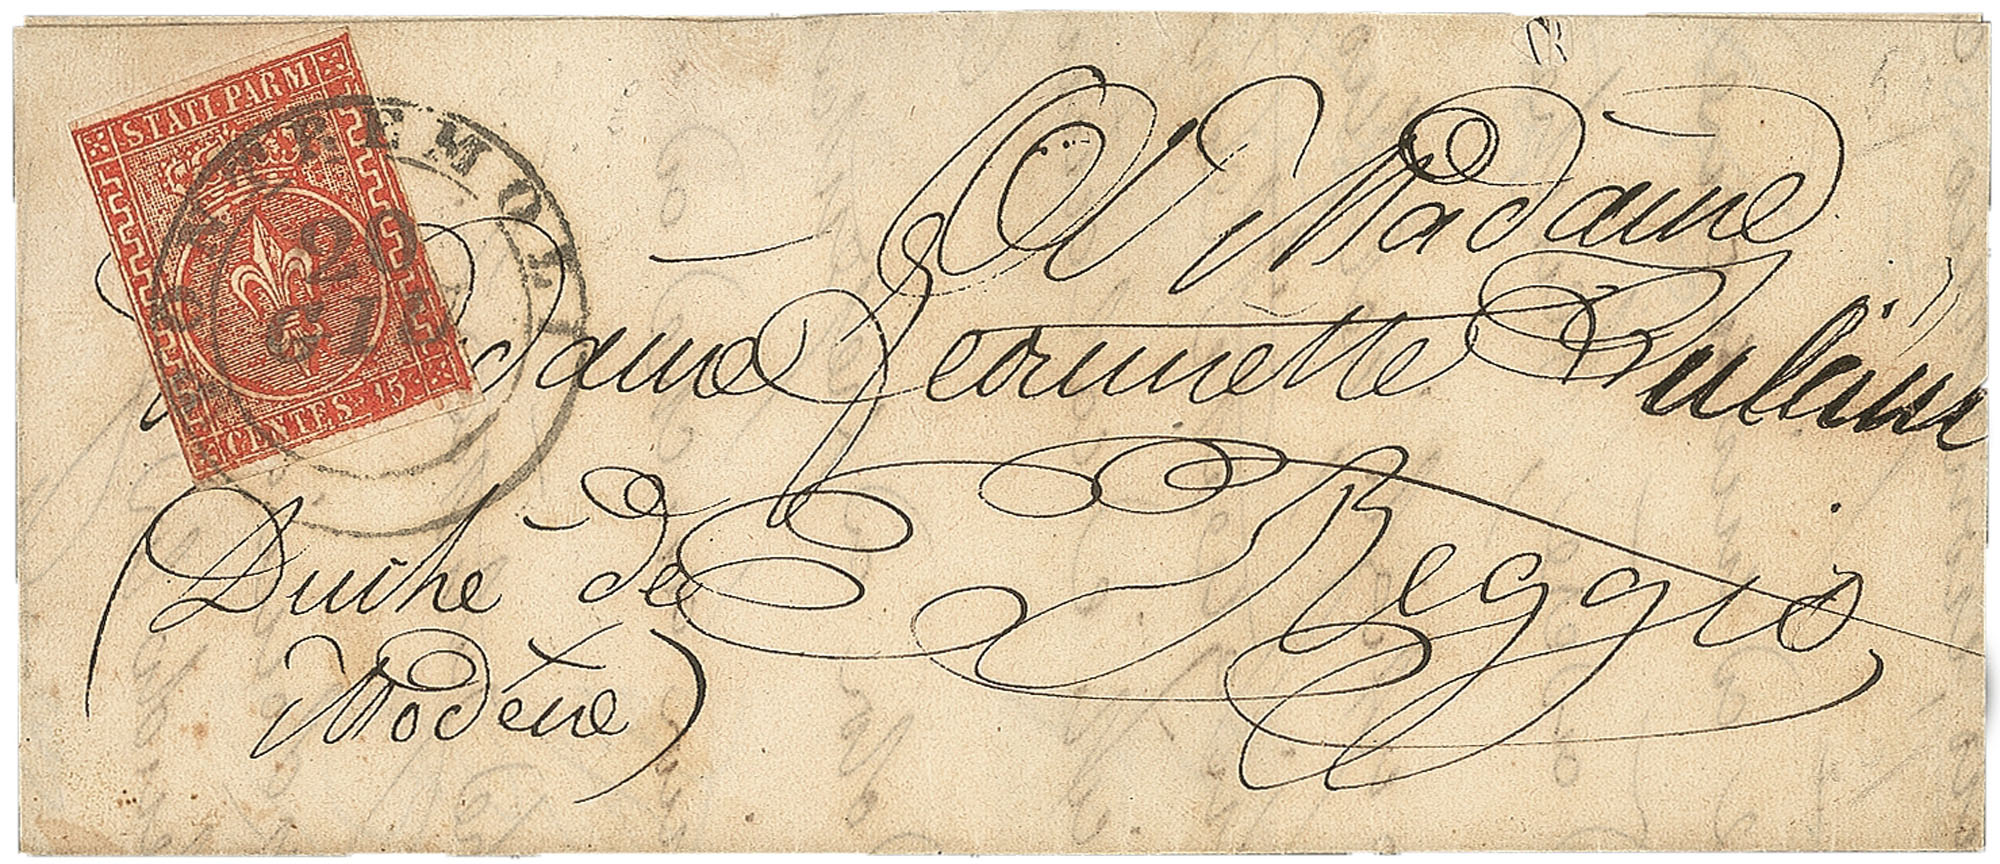 STATI PARM
CENTES. 15
20
GIU
A Madame
Madame Jeannette
Reggio
(Duché de
Modène)